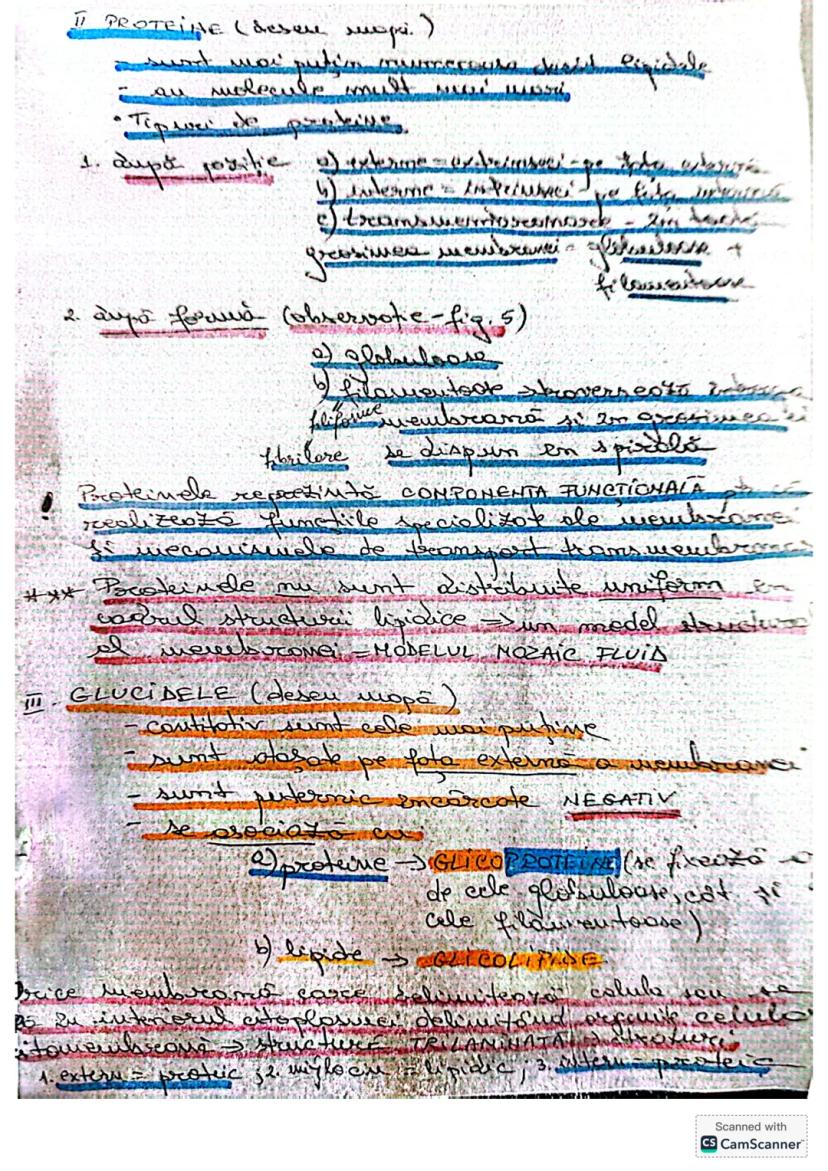 II PROTEINE (desen mapă)
- sunt mai puțin numeroase decât lipidele
- au molecule mult mai mari
• Tipuri de proteine
1. după poziție a) externe = extrinseci - pe fața externă
b) interne = intrinseci - pe fața internă
c) transmembranare - în toată
grosimea membranei = globuloase +
filamentoase
2. după formă (observație - fig. 5)
a) globuloase
b) filamentoase → traversează întreaga
filiforme membrană și în grosimea ei
fibrilare se dispun în spirală
! Proteinele reprezintă COMPONENTA FUNCȚIONALĂ pt. că
realizează funcțiile specializate ale membranei
și mecanismele de transport transmembranar
*** Proteinele nu sunt distribuite uniform în
cadrul structurii lipidice => un model structural
al membranei = MODELUL MOZAIC FLUID
III. GLUCIDELE (desen mapă)
- cantitativ sunt cele mai puține
- sunt atașate pe fața externă a membranei
- sunt puternic încărcate NEGATIV
- se asociază cu
a) proteine → GLICOPROTEINE (se fixează
de cele globuloase, cât și
cele filamentoase)
b) lipide → GLICOLIPIDE
Orice membrană care delimitează celula sau se
în interiorul citoplasmei delimitând organite celula
citomembrană → structură TRILAMINATĂ: 3 straturi
1. extern = proteic; 2. mijlociu = lipidic; 3. intern = proteic
Scanned with
CS CamScanner